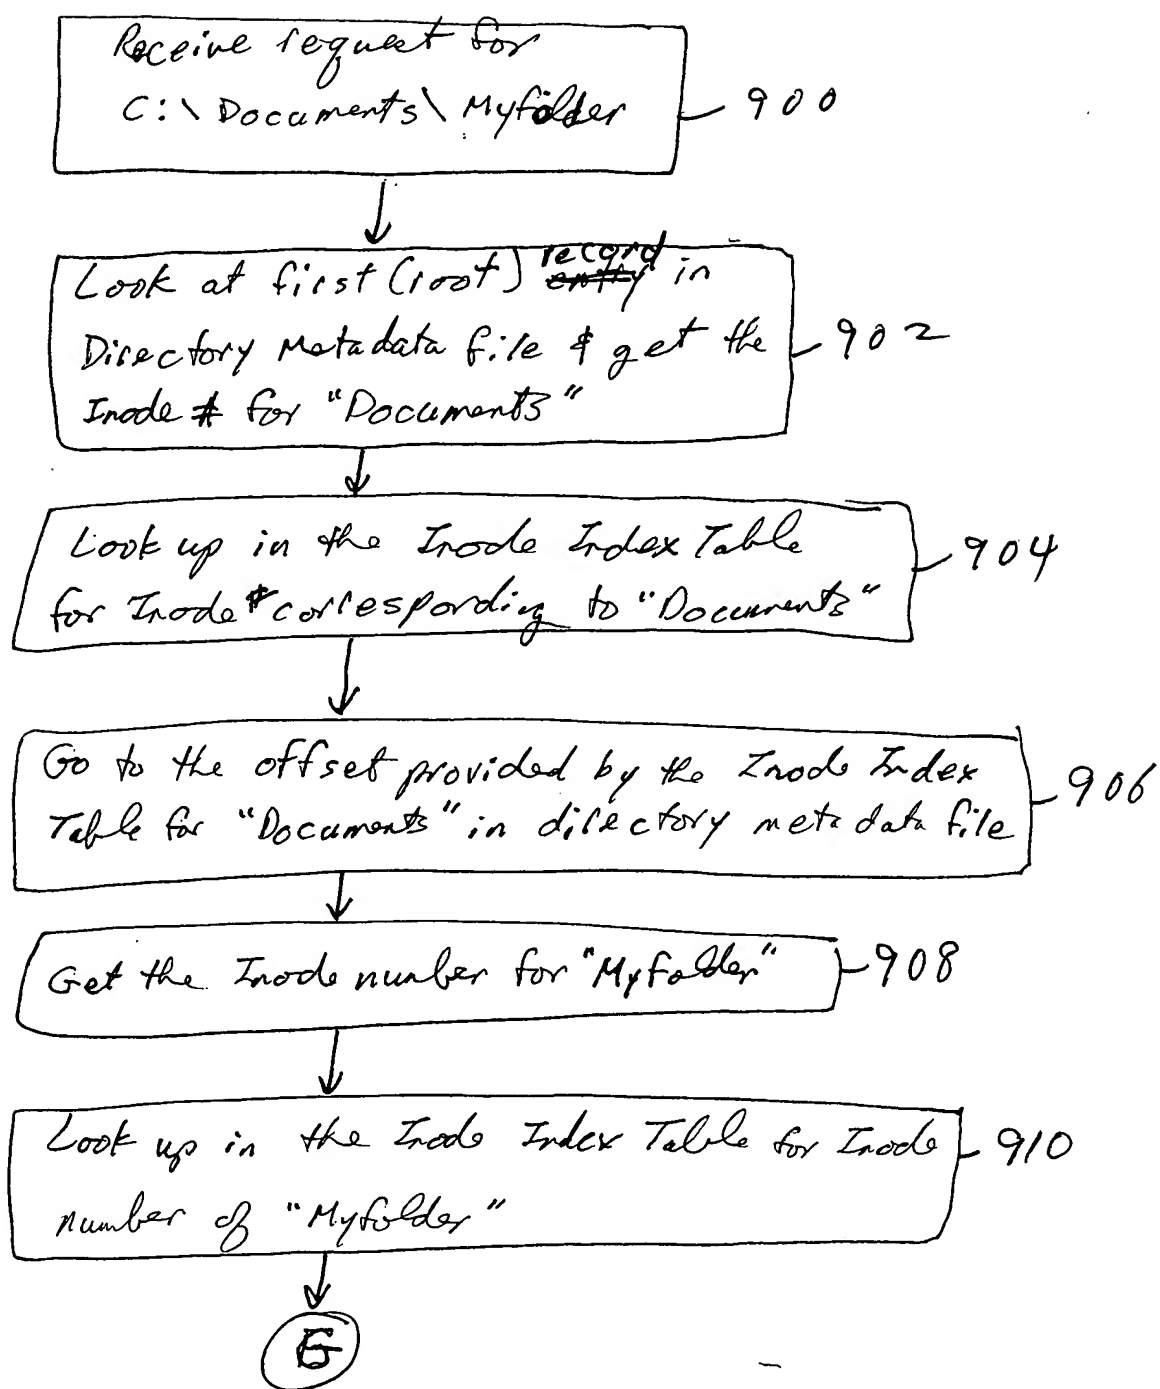 Receive request for
C:\Documents\Myfolder
900
record
Look at first (root) entry in
Directory Metadata file & get the
Inode # for "Documents"
902
Look up in the Inode Index Table
for Inode # corresponding to "Documents"
904
Go to the offset provided by the Inode Index
Table for "Documents" in directory metadata file
906
Get the Inode number for "Myfolder"
908
Look up in the Inode Index Table for Inode
number of "Myfolder"
910